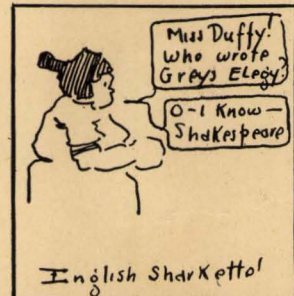 Miss Duffy!
Who wrote
Greys Elegy?
O-I Know—
Shakespeare
English Sharketto!